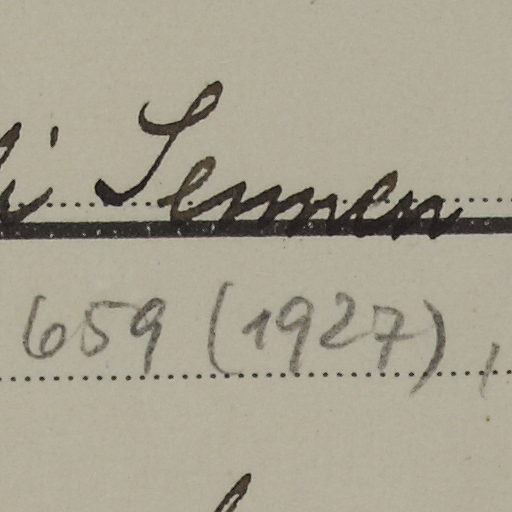 i Semen
659 (1927),